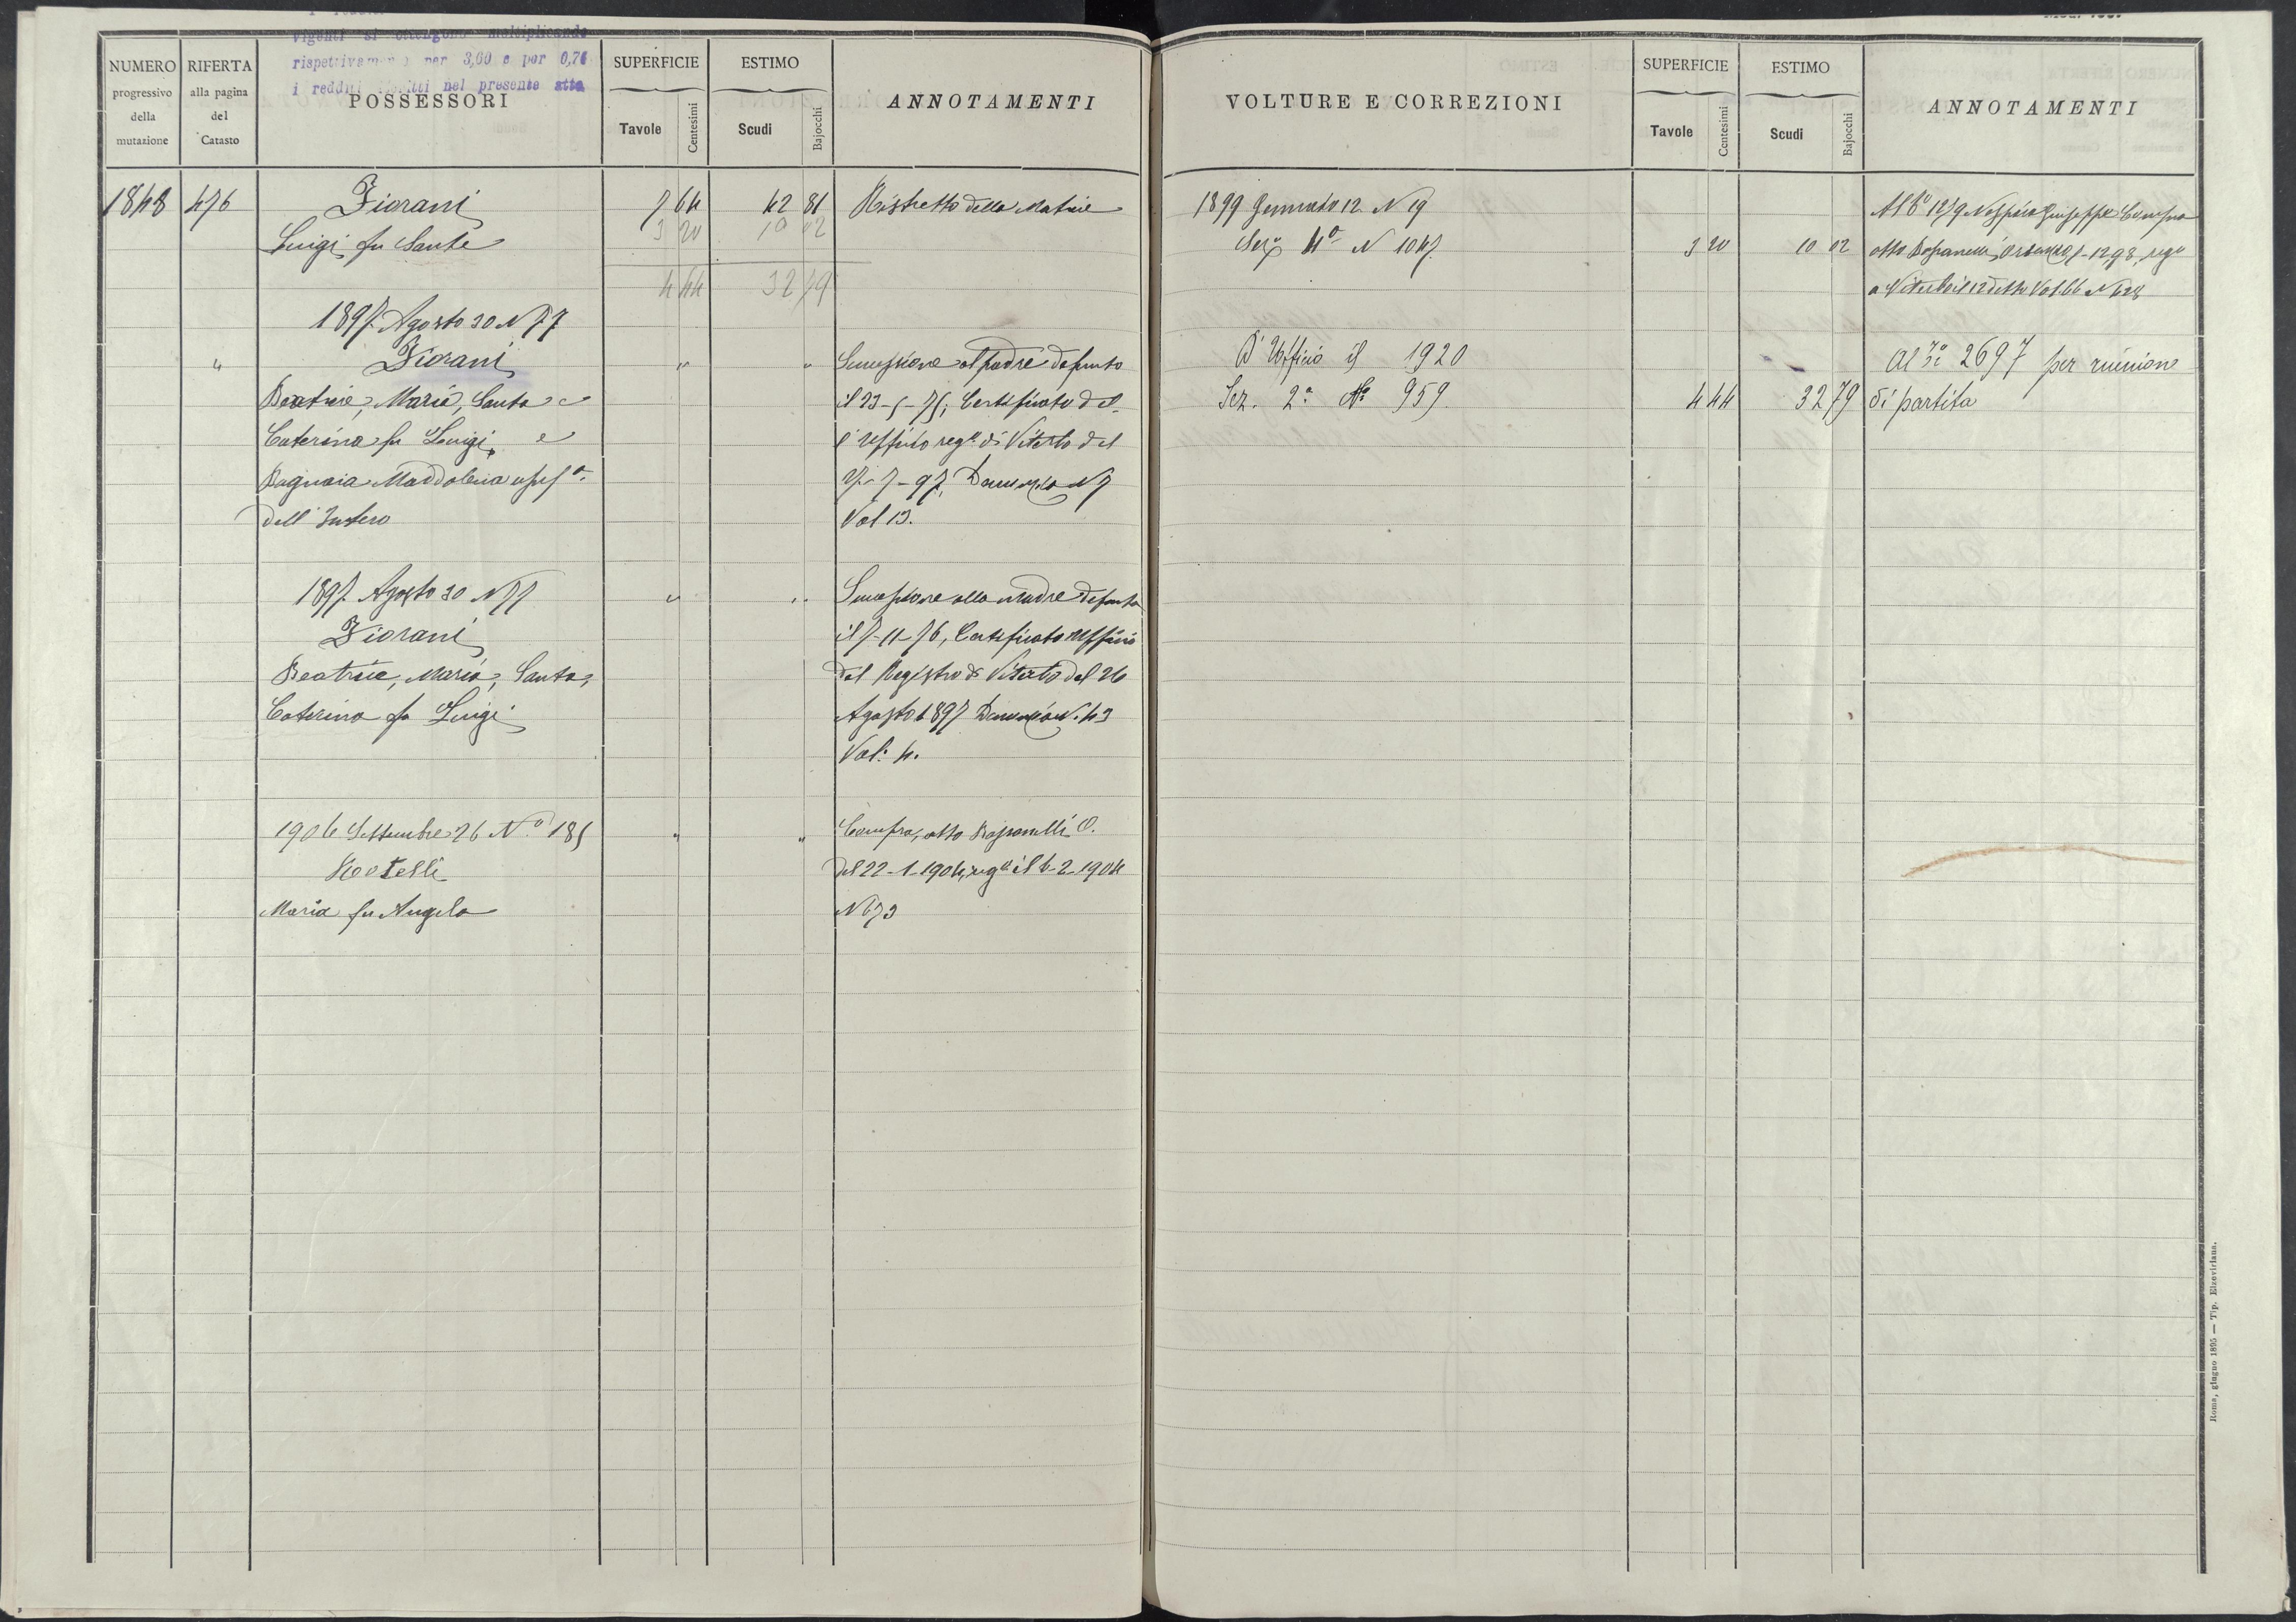 vigenti si ottengono moltiplicando
rispettivamente per 3,60 e per 0,74
i redditi iscritti nel presente atto
NUMERO progressivo della mutazione
RIFERTA alla pagina del Catasto
POSSESSORI
SUPERFICIE
Tavole Centesimi
ESTIMO
Scudi Bajocchi
ANNOTAMENTI
1848 476 Fiorani 7 64 42 81 Ristretto della Matrice
Luigi fu Sante 3 20 10 02
4 44 32 79
1897 Agosto 30 N 77
" Fiorani " " Successione al padre defunto
Beatrice, Maria, Santa e il 23-5-75; Certificato del
Caterina fu Luigi, e l'Ufficio reg° di Viterbo del
Bagnaia Maddalena usuf.a 27-7-97, Denunzia N 7
dell'Intero Vol 13.
1897 Agosto 30 N 77 " " Successione alla madre defunta
Fiorani il 7-11-76, Certificato Ufficio
Beatrice, Maria, Santa, del Registro di Viterbo del 26
Caterina fu Luigi Agosto 1897 Denunzia N. 43
Vol: 4.
1904 Settembre 26 N.° 185 " " Compra, atto O.
Rotelli del 22-1-1904, reg° il 6-2-1904
Maria fu Angelo N 673
VOLTURE E CORREZIONI
SUPERFICIE
Tavole Centesimi
ESTIMO
Scudi Bajocchi
ANNOTAMENTI
1899 Gennaio 12 N 19 Giuseppe Compra
Sez 4a N 1047 3 20 10 02 atto reg°
a Viterbo il 12 detto Vol. 66 N 628
D'Ufficio il 1920 Al 2697 per riunione
Sez. 2a N° 959 4 44 32 79 di partita
Roma, giugno 1895 — Tip. Elzeviriana.